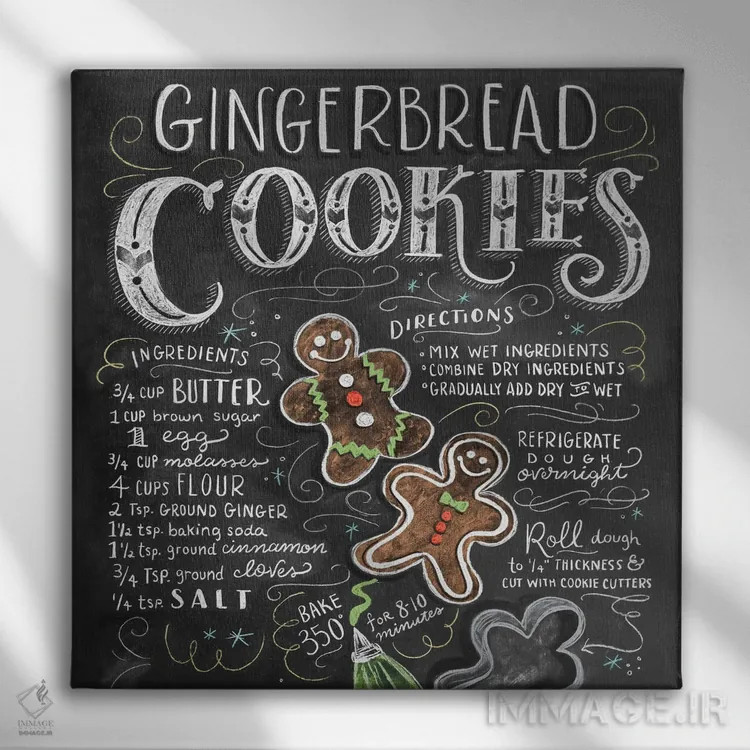 GINGERBREAD
COOKIES
INGREDIENTS
3/4 CUP BUTTER
1 CUP brown sugar
1 egg
3/4 CUP molasses
4 CUPS FLOUR
2 TSP. GROUND GINGER
1 1/2 tsp. baking soda
1 1/2 tsp. ground cinnamon
3/4 TSP. ground cloves
1/4 tsp. SALT
DIRECTIONS
• MIX WET INGREDIENTS
• COMBINE DRY INGREDIENTS
• GRADUALLY ADD DRY TO WET
REFRIGERATE
DOUGH
overnight
Roll dough
to 1/4" THICKNESS &
CUT WITH COOKIE CUTTERS
BAKE
350°
for 8-10
minutes
IMMAGE
IMMAGE.IR
IMMAGE.IR